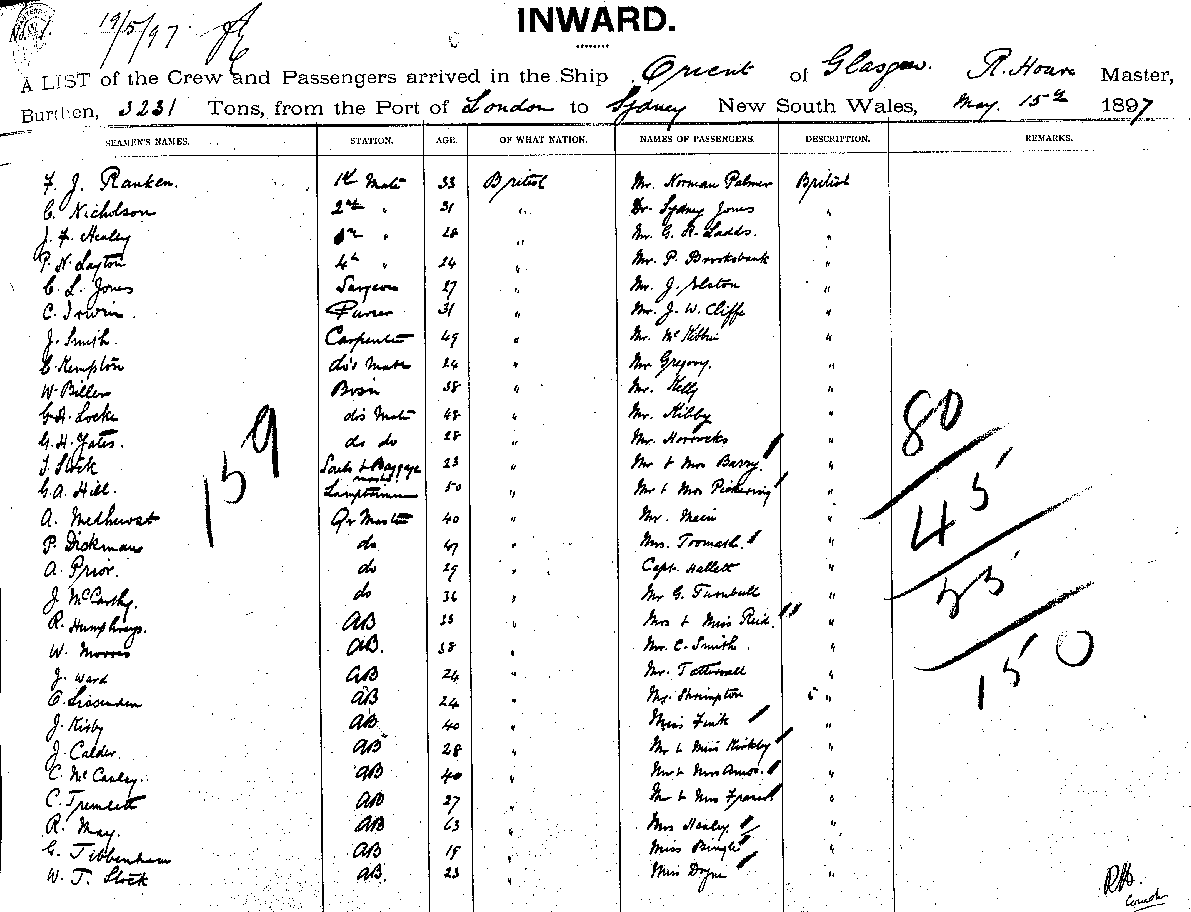 No. 1. 19/5/97
INWARD.
A LIST of the Crew and Passengers arrived in the Ship Orient of Glasgow. R. Hoare Master,
Burthen, 3231 Tons, from the Port of London to Sydney New South Wales, May 15th 1897
SEAMEN'S NAMES. STATION. AGE. OF WHAT NATION. NAMES OF PASSENGERS. DESCRIPTION. REMARKS.
F. J. Ranken. 1st Mate 33 British Mr. Norman Palmer British
C. Nicholson 2nd " 31 " Dr. Sydney Jones "
J. F. Healey " 28 " Mr. G. R. Ladds. "
P. N. Layton 4th " 24 " Mr. P. Brooksbank "
C. L. Jones Surgeon 27 " Mr. J. "
C. Irwin. Purser 31 " Mr. J. W. Cliffe "
J. Smith. Carpenter 49 " Mr. McKibbin "
C. Kempton do's Mate 24 " Mr. Gregory. "
W. Biller Bosn 38 " Mr. Kelly "
G. A. Locke do's Mate 48 " Mr. Kilby "
G. H. Yates. do do 28 " Mr. Horrocks "
Stock & Baggage master 23 " Mr & Mrs Barry "
G. A. Hill. Lamptrimmer 50 " Mr & Mrs Pickering "
A. Medhurst Qr Master 40 " Mr. Main "
P. Dickmans do 47 " Mrs. Toomath. "
A. Prior. do 29 " Capt. Hallett "
J. McCarthy. do 36 " Mr G. Turnbull "
R. Humphreys. AB 23 " Mrs & Miss Reid. "
W. Morris AB. 38 " Mr. C. Smith. "
J. Ward AB 24 " Mr. Tattersall "
C. Sissenden AB 24 " Mr. Shrimpton "
J. Kisby AB 40 " Miss Fink "
J. Calder. AB 28 " Mr & Miss Kirkby "
C. McCauley. AB 40 " Mr & Mrs Amos. "
C. Tremlett AB 27 " Mr & Mrs Francis "
R. May. AB 63 " Mrs Healey "
G. Tibbenham AB 19 " Miss Bingle "
W. T. Stock AB. 23 " Miss Doyne "
159
80
45
150